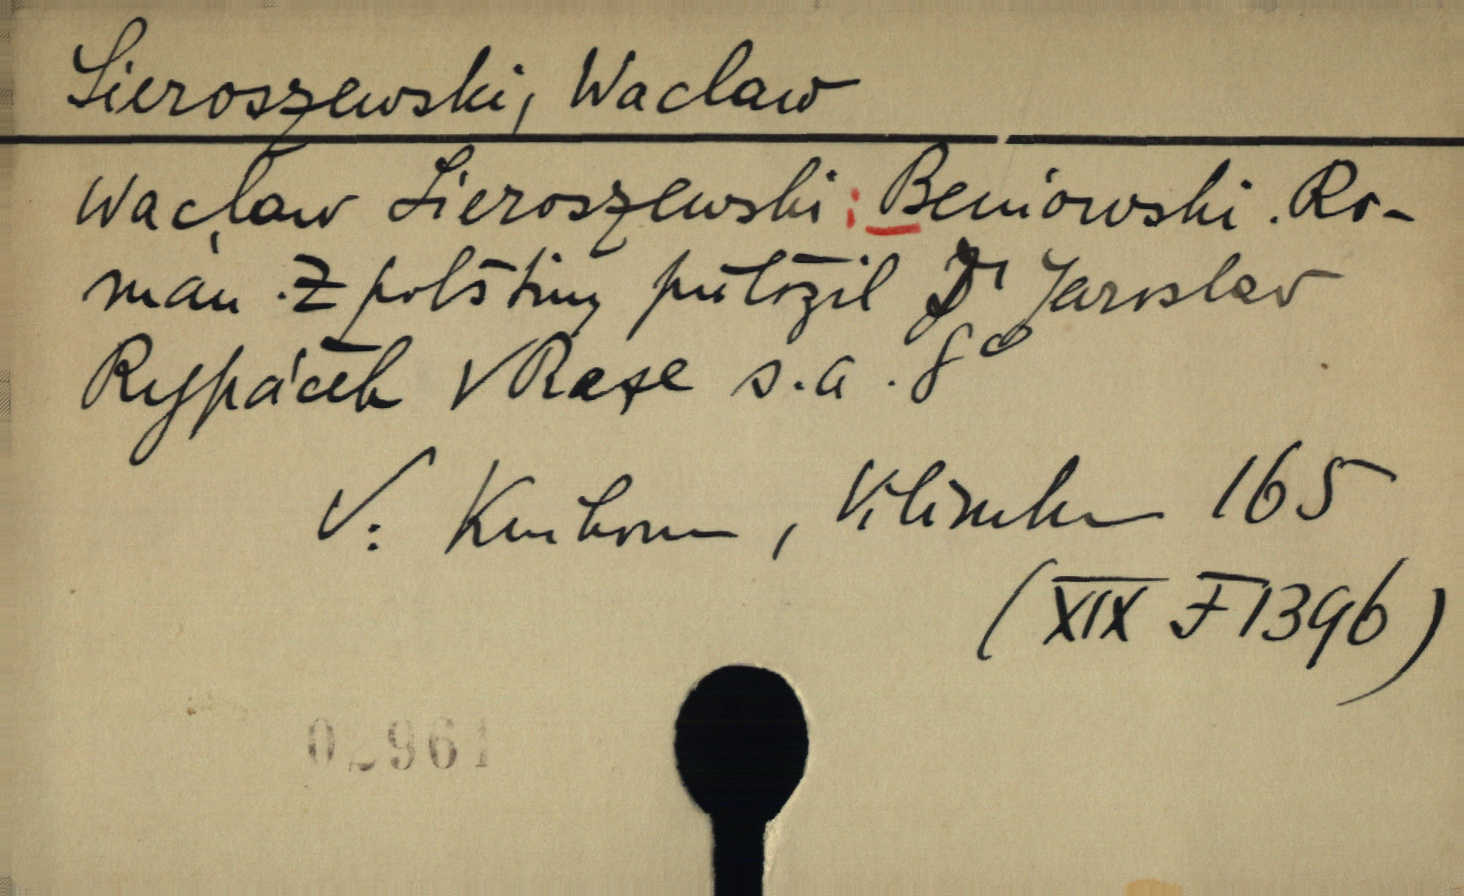 Sieroszewski, Waclaw
Waclaw Sieroszewski: Beniowski. Ro-
mán. Z polštiny přeložil Dr Jaroslav
Rypáček V Praze s.a. 8°
V: Knihovna, Vilímek 165
(XIX F 1396)
02961